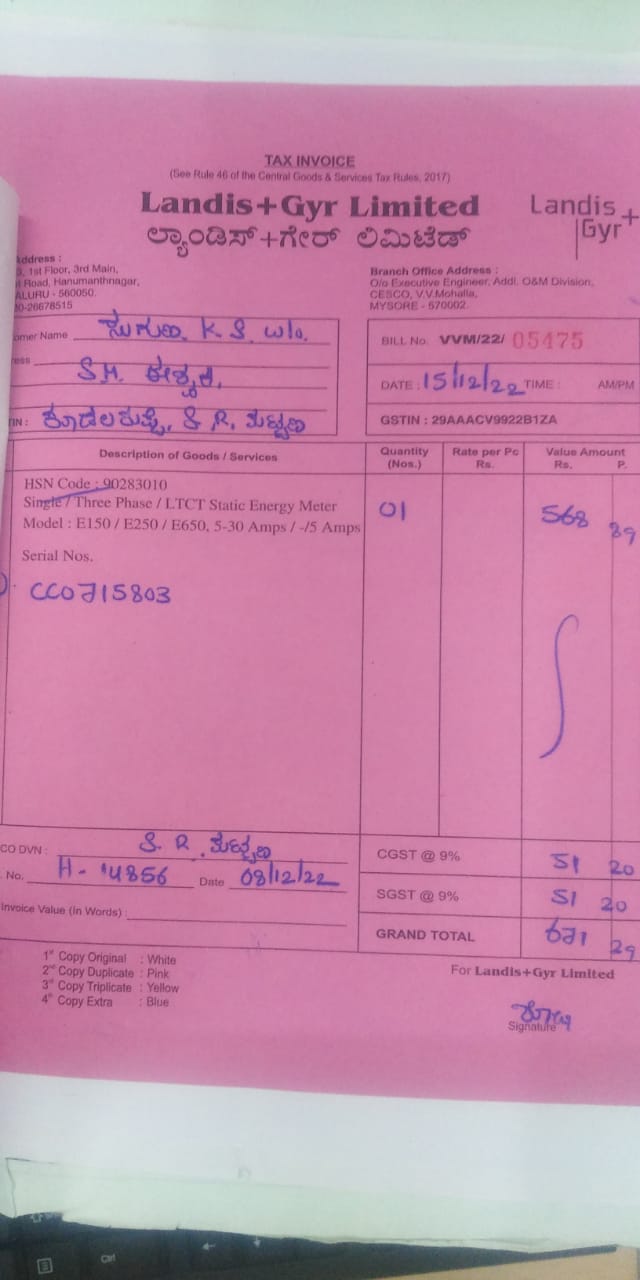 TAX INVOICE
(See Rule 46 of the Central Goods & Services Tax Rules, 2017)
Landis+Gyr Limited
ಲ್ಯಾಂಡಿಸ್+ಗೇರ್ ಲಿಮಿಟೆಡ್
Landis
Gyr+
Address :
1st Floor, 3rd Main,
Road, Hanumanthnagar,
ALURU - 560050.
0-26678515
Branch Office Address :
O/o Executive Engineer, Addl. O&M Division,
CESCO, V.V.Mohalla,
MYSORE - 570002.
omer Name ಸುಗುಣ. K. S. w/o.
ress S.M. ಈಶ್ವರ.
TIN : S. R. ಪಟ್ಟಣ
BILL No. VVM/22/ 05475
DATE : 15/12/22 TIME : AM/PM
GSTIN : 29AAACV9922B1ZA
Description of Goods / Services Quantity (Nos.) Rate per Pc Rs. Value Amount Rs. P.
HSN Code : 90283010
Single / Three Phase / LTCT Static Energy Meter 01 568 89
Model : E150 / E250 / E650, 5-30 Amps / -/5 Amps
Serial Nos.
CC0715803
CO DVN : S. R. ಪಟ್ಟಣ
No. H- 14856 Date 08/12/22
Invoice Value (in Words)
CGST @ 9% 51 20
SGST @ 9% 51 20
GRAND TOTAL 671 29
1st Copy Original : White
2nd Copy Duplicate : Pink
3rd Copy Triplicate : Yellow
4th Copy Extra : Blue
For Landis+Gyr Limited
Signature
Ctrl